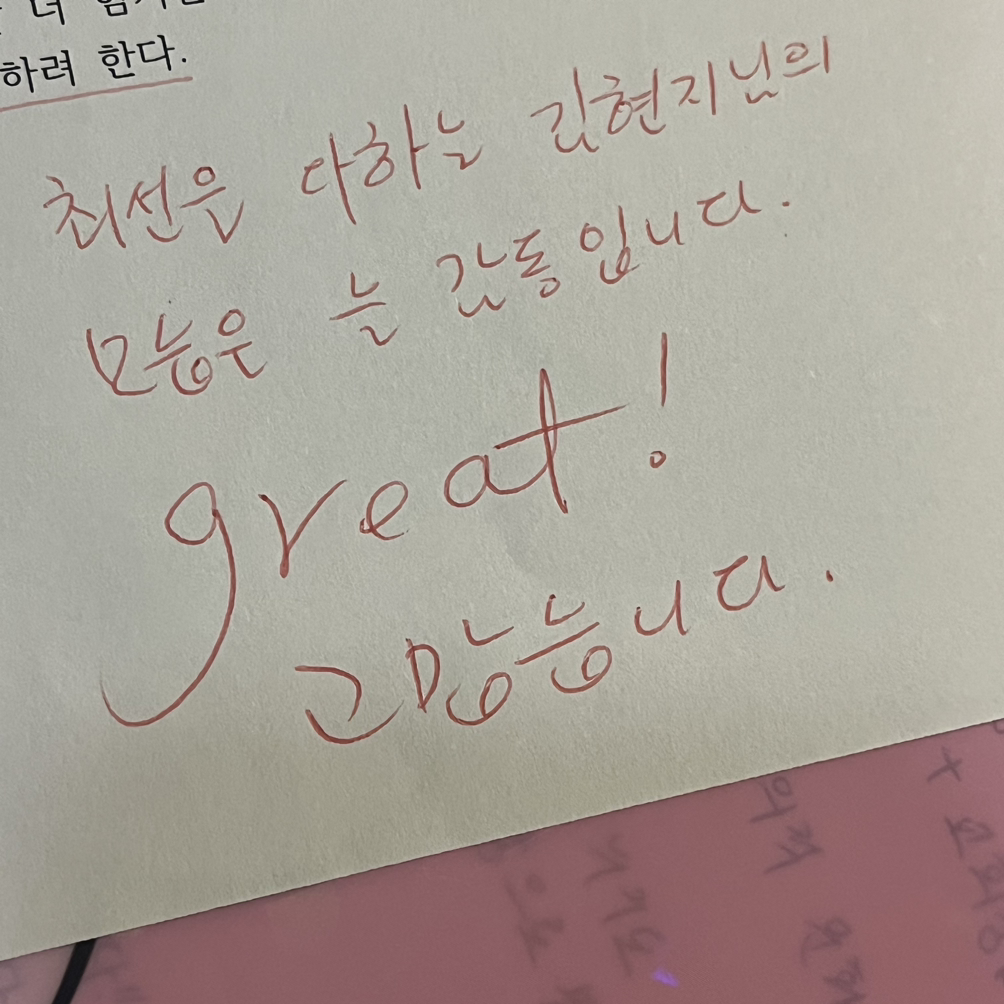 너
하려 한다.
최선을 다하는 김현지님의
모습은 늘 감동입니다.
great!
고맙습니다.